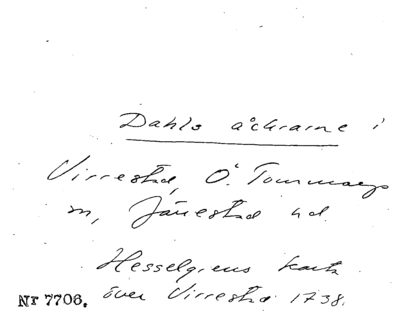 Dahls åckrarne i
Virrestad, Ö. Tommarps
sn, Järrestad hd.
Hesselgrens karta
över Virrestad 1738.
Nr 7706.